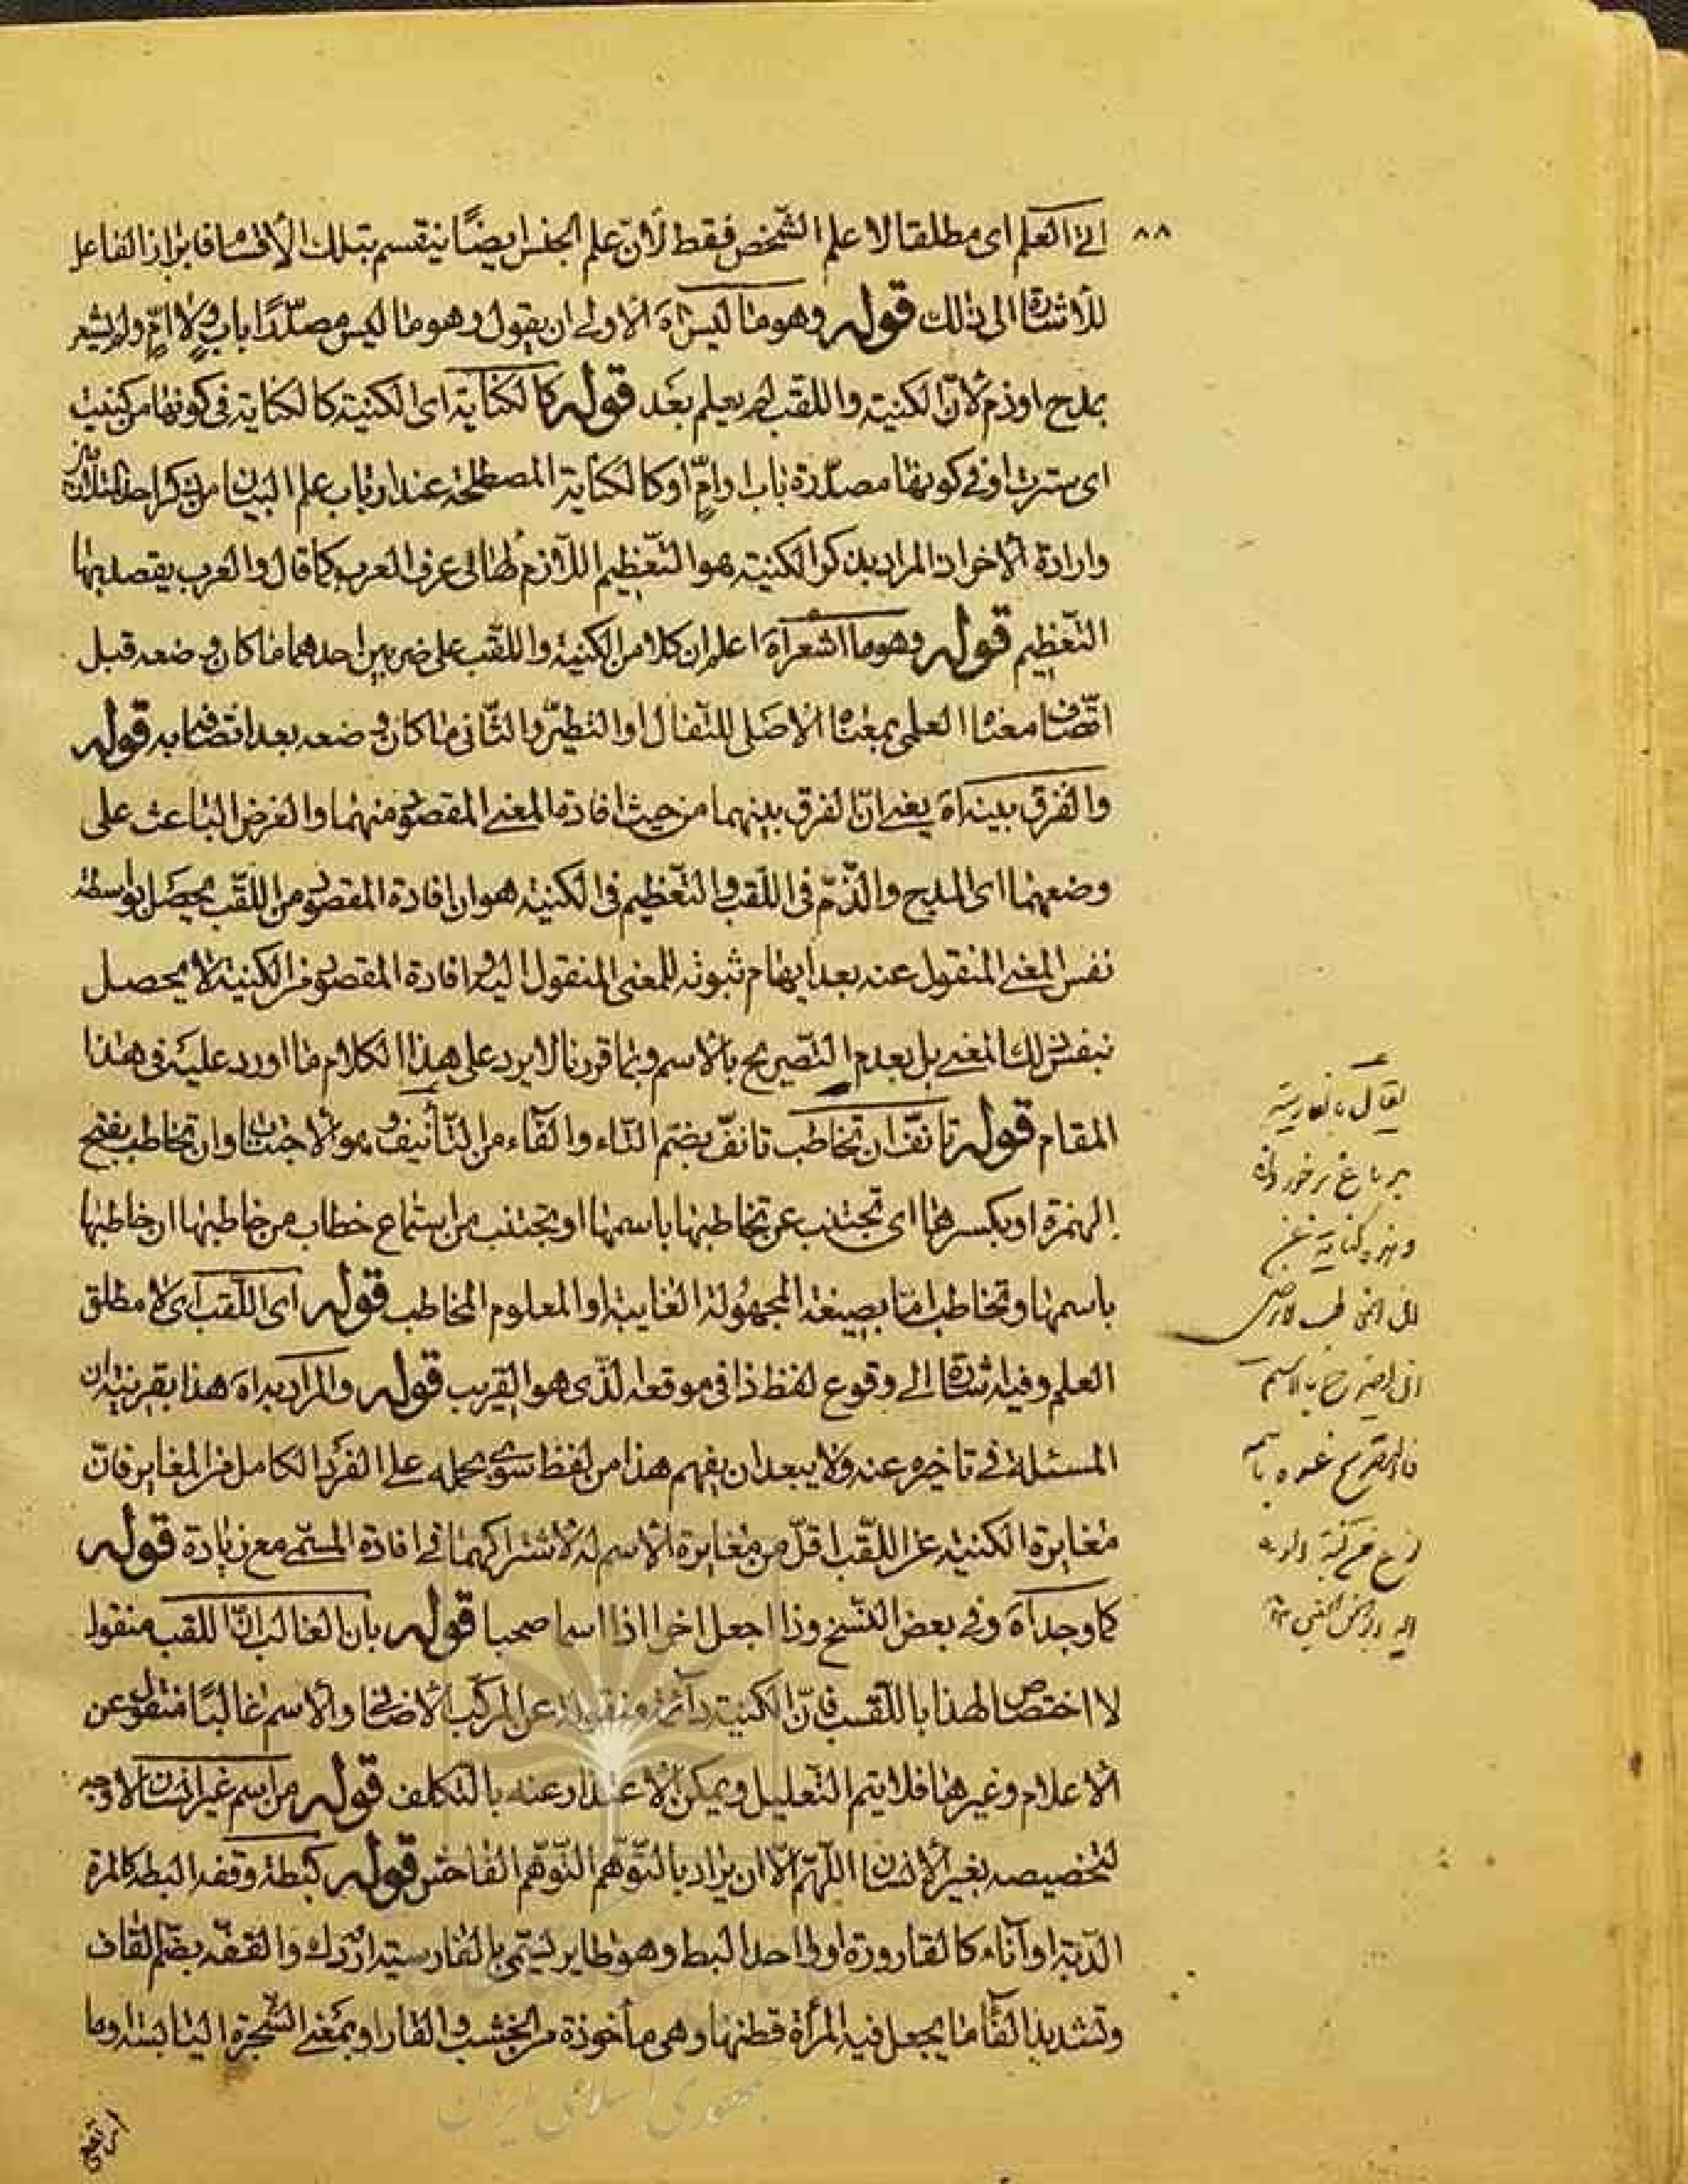 ٨٨
اى العلم اى مطلقا لا علم الشخص فقط لأنّ علم الجنس ايضًا ينقسم بتلك الأقسام فابراز الفاعل
للاشارة الى ذلك قوله وهو ما ليس اه الاولى ان يقول وهو ما ليس مصدّرًا باب ولا امّ ولم يشعر
بمدح او ذم لأنّ الكنية واللقب لم يعلم بعد قوله كالكناية اى الكنية كالكناية فى كونها من كنيت
اى سترت او فى كونها مصدّرة باب او امّ او كالكناية المصطلحة عند ارباب علم البيان من ذكر احد المتلازمين
وارادة الاخر اذ المراد بذكر الكنية هو التعظيم اللازم لها فى عرف العرب كما قال والعرب يقصد بها
التعظيم قوله وهو ما اشعر اه اعلم ان كلا من الكنية واللقب على ضربين احدهما ما كان وضعه قبل
اتصاف معناه العلمى بمعناه الاصلى للتفأل او التطيّر والثانى ما كان وضعه بعد اتصافه به قوله
والفرق بينه اه يعنى انّ الفرق بينهما من حيث افادة المعنى المقصود منهما والغرض الباعث على
وضعهما اى المدح والذّم فى اللقب والتعظيم فى الكنية هو ان افادة المقصود من اللقب يحصل بواسطة
نفس المعنى المنقول عنه بعد ايهام ثبوته للمعنى المنقول اليه وافادة المقصود من الكنية لا يحصل
بنفس ذلك المعنى بل بعدم التصريح بالاسم وبما قررنا لا يرد على هذا الكلام ما اورد عليه فى هذا
المقام قوله تأنف ان تخاطب تانف بضم التاء والفاء من التأنيف وهو الاجتناب او ان تخاطب بفتح
الهمزة او بكسرها اى تجتنب عن تخاطبها باسمها او تجتنب من استماع خطاب من خاطبها ان خاطبها
باسمها وتخاطب امّا بصيغة المجهولة الغايبة او المعلوم المخاطب قوله اى اللقب اى لا مطلق
العلم وفيه اشارة الى وقوع لفظ ذا فى موقعه الذى هو القريب قوله والمراد به اه هذا بقرينة ان
المسئلة فى تاخيره عنه ولا يبعد ان يفهم هذا من لفظ سوى بحمله على الفرد الكامل من المغاير فان
مغايرة الكنية عن اللقب اقلّ من مغايرة الاسم له لاشتراكهما فى افادة المسمّى مع زيادة قوله
كما وجد اه وفى بعض النسخ وذا اجعل اخرا اذا اسما صحبا قوله بان الغالب انّ اللقب منقول
لا اختصاص لهذا باللقب فانّ الكنية دائمة منقولة عن المركّب الاضافى والاسم غالبًا منقول عن
الاعلام وغيرها فلا يتم التعليل ويمكن الاعتذار عنه بالتكلف قوله من اسم غير انسان لا وجه
لتخصيصه بغير الانسان اللهم الّا ان يراد بالتوّهم التوّهم الفاحش قوله كبطة وقفه البطة كالمرة
الدّبة او آناء كالقارورة او واحد البط وهو طاير يسمّى بالفارسية اردك والقفة بضم القاف
وتشديد الفاء ما يجعل فيه المرأة قطنها وهى مأخوذة من الخشب والقار او بمعنى الشجرة اليابسة وما
يقال بالفارسية
بالاسم